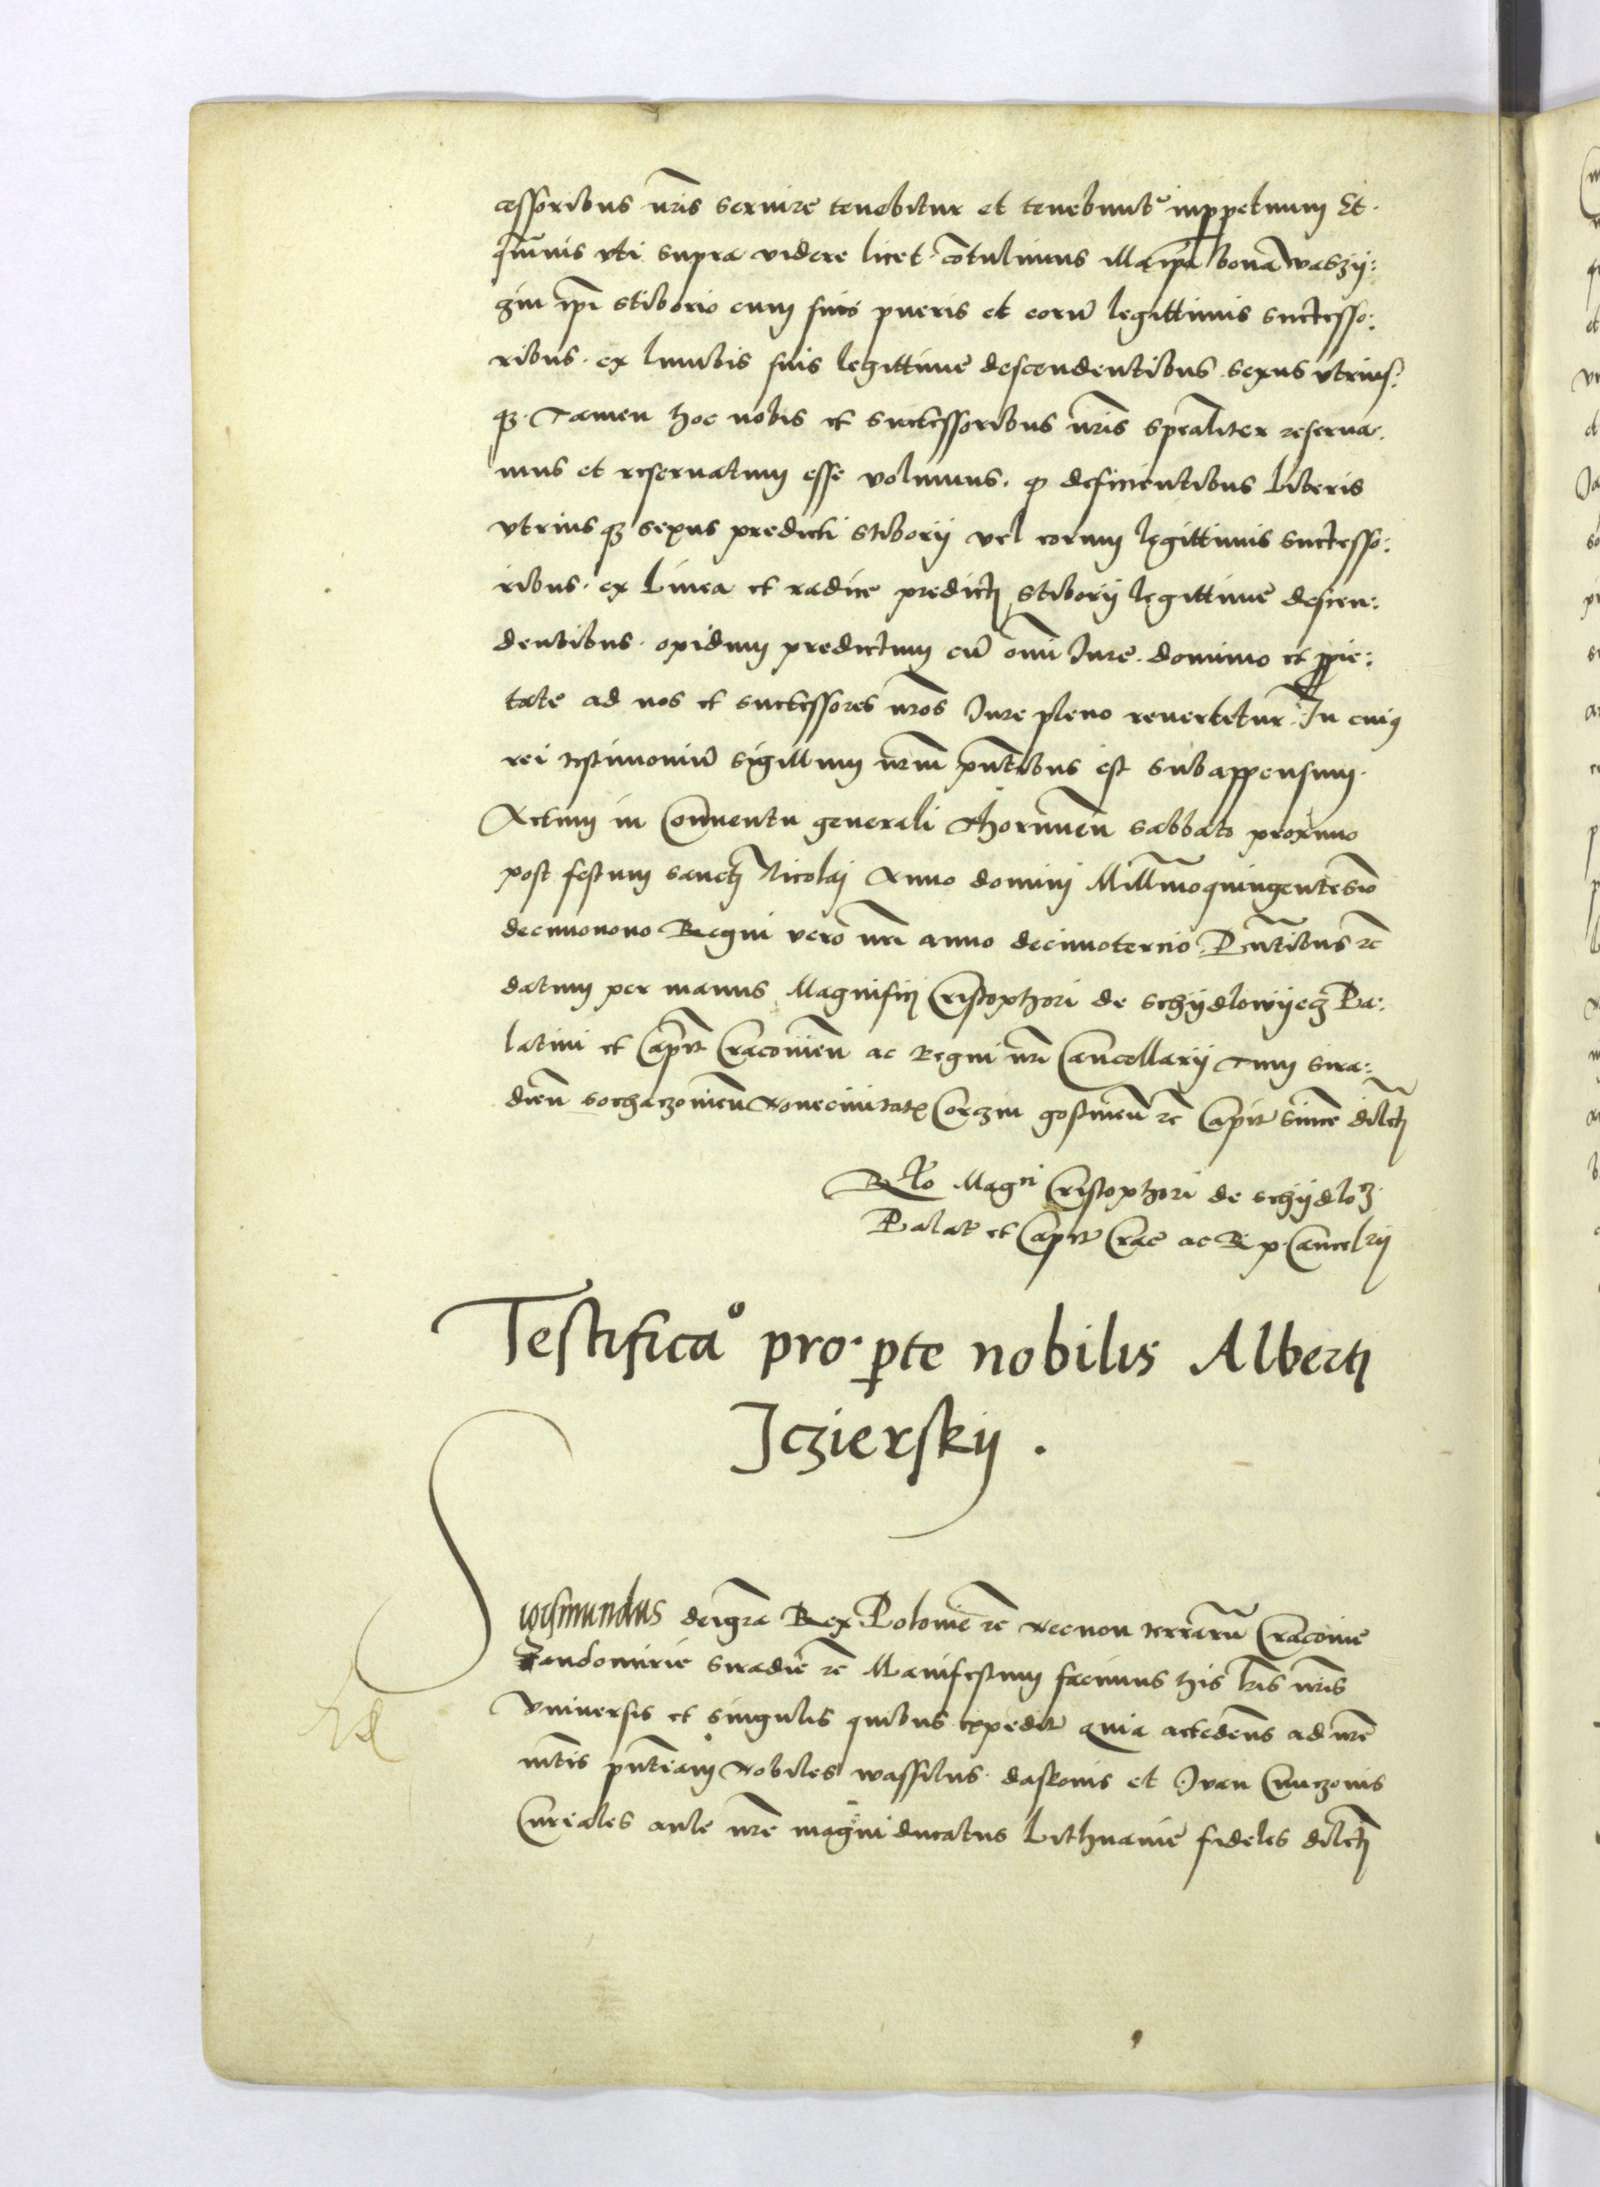 cessoribus nr̃is seruire tenebitur et tenebunt᷎ inp̱petuum Et
qm̃uis vti supra videre licet cõtulimus illa ip̃a bona Waszÿ:
gin ip̃i Stiborio cum suis pueris et eorũ legittimis successo:
ribus ex lumbis suis legittime descendentibus sexus vtrius:
qȝ Tamen hoc nobis et successoribus nr̃is sp̃ealiter reserua:
mus et reseruatum esse volumus ꝙ deficientibus liberis
vtriusqȝ sexus predicti Stiborij vel eorum legittimis successo:
ribus ex linea et radice predicti Stiborij legittime descen:
dentibus opidum predictum cũ om̃i Iure dominio et ꝓprie:
tate ad nos et successores nr̃os Iure pleno reuertetur In cuiꝯ
rei testimoniũ sigillum nr̃um pn̄tibus est subappensum
Actum in Conuentu generali Thorunien̄ sabbato proximo
post festum sancti Nicolai Anno domini Mill̃imoquingentesi͠o
decimonono Regni vero nr̃i anno decimotercio Pn̄tibus rc̄
datum per manus Magnifici Cristophori de Schÿdlowÿecz Pa:
latini et Capit̃ Cracouien̄ ac Regni nr̃i Cancellarij Tum Sira:
dien̄ Sochaczouien̄ Nouecimitat̃ Corczin gostinen̄ rc̄ Capit̃ sinc̄e dilcti
Rẽlo Mag^ci Cristophori de Schÿdloȝ
Palat̃ et Capit̃ Crac̃ ac R P Cancelrij
Testifica° pro pte nobilis Alberti
Iczierskij .
Sigismundus deigr̃a Rex Polonie rc̄ Necnon terrarũ Cracouie
Sandomirie Siradie rc̄ Manifestum facimus his lr̃is nr̃is
Vniuersis et singulis quibus expedit quia accedens ad nr̃e
mt̃is pn̄tiam Nobiles Wassilus daskouis et Iuan Cunczouis
Curiales aule nr̃e magni ducatus Lithuanie fideles dilcti